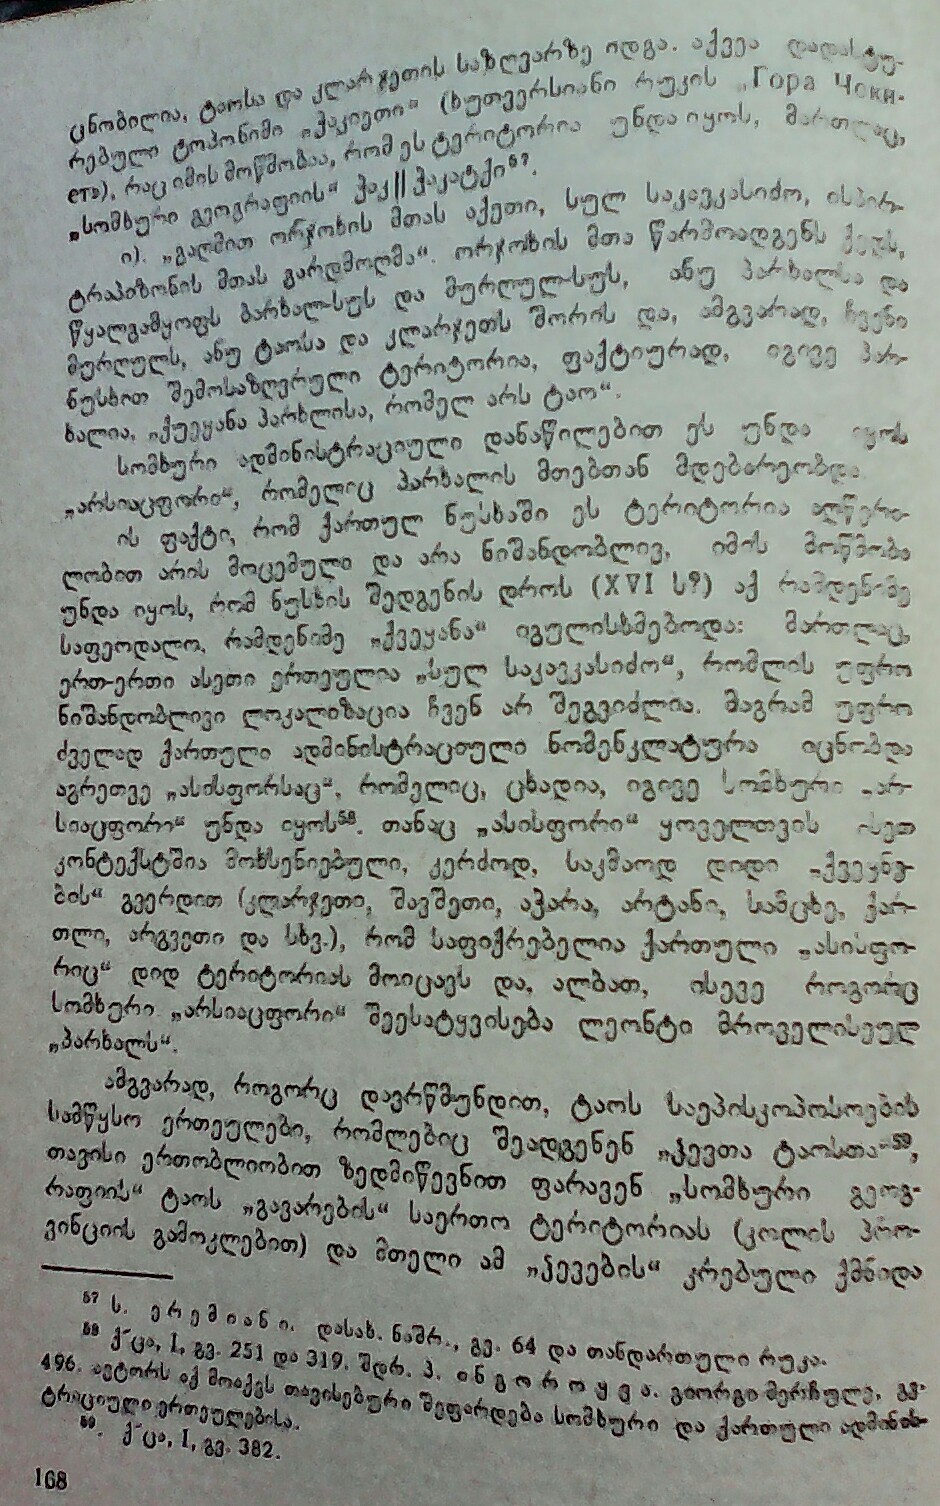 ცნობილია, ტაოსა და კლარჯეთის საზღვარზე იდგა. აქვეა დადასტუ-
რებული ტოპონიმი „ჭაკიეთი“ (ხუთვერსიანი რუკის „Гора Чоки-
етъ), რაც იმის მოწმობაა, რომ ეს ტერიტორია უნდა იყოს, მართლაც,
„სომხური გეოგრაფიის“ ჭაკ||ჭაკატქი⁵⁷.
ი). „გაღმით ორჯოხის მთას აქეთი, სულ საკავკასიძო, ისპირ-
ტრაპიზონის მთას გარდმოღმა“. ორჯოხის მთა წარმოადგენს ქედს,
წყალგამყოფს ბარხალ-სუს და მურღულ-სუს, ანუ პარხალსა და
მურღულს, ანუ ტაოსა და კლარჯეთს შორის და, ამგვარად, ჩვენი
ნუსხით შემოსაზღვრული ტერიტორია, ფაქტიურად, იგივე პარ-
ხალია, „ქუეყანა პარხლისა, რომელ არს ტაო“.
სომხური ადმინისტრაციული დანაწილებით ეს უნდა იყოს
„არსიაცფორი“, რომელიც პარხალის მთებთან მდებარეობდა.
ის ფაქტი, რომ ქართულ ნუსხაში ეს ტერიტორია აღწერი-
ლობით არის მოცემული და არა ნიშანდობლივ, იმის მოწმობა
უნდა იყოს, რომ ნუსხის შედგენის დროს (XVI ს?) აქ რამდენიმე
საფეოდალო, რამდენიმე „ქვეყანა“ იგულისხმებოდა: მართლაც,
ერთ-ერთი ასეთი ერთეულია „სულ საკავკასიძო“, რომლის უფრო
ნიშანდობლივი ლოკალიზაცია ჩვენ არ შეგვიძლია. მაგრამ უფრო
ძველად ქართული ადმინისტრაციული ნომენკლატურა იცნობდა
აგრეთვე „ასისფორსაც“, რომელიც, ცხადია, იგივე სომხური „არ-
სიაცფორი“ უნდა იყოს⁵⁸. თანაც „ასისფორი“ ყოველთვის ისეთ
კონტექსტშია მოხსენიებული, კერძოდ, საკმაოდ დიდი „ქვეყნე-
ბის“ გვერდით (კლარჯეთი, შავშეთი, აჭარა, არტანი, სამცხე, ქარ-
თლი, არგვეთი და სხვ.), რომ საფიქრებელია ქართული „ასისფო-
რიც“ დიდ ტერიტორიას მოიცავს და, ალბათ, ისევე როგორც
სომხური „არსიაცფორი“ შეესატყვისება ლეონტი მროველისეულ
„პარხალს“.
ამგვარად, როგორც დავრწმუნდით, ტაოს საეპისკოპოსოების
სამწყსო ერთეულები, რომლებიც შეადგენენ „ჴევთა ტაოსთა“⁵⁹,
თავისი ერთობლიობით ზედმიწევნით ფარავენ „სომხური გეოგ-
რაფიის“ ტაოს „გავარების“ საერთო ტერიტორიას (კოლის პრო-
ვინციის გამოკლებით) და მთელი ამ „ჴევების“ კრებული ქმნიდა
⁵⁷ ს. ერემიანი. დასახ. ნაშრ., გვ. 64 და თანდართული რუკა.
⁵⁸ ქ՜ცა, I, გვ. 251 და 319. შდრ. პ. ინგოროყვა. გიორგი მერჩულე, გვ.
496. ავტორს აქ მოაქვს თავისებური შეფარდება სომხური და ქართული ადმინის-
ტრაციული ერთეულებისა.
⁵⁹. ქ՜ცა, I, გვ. 382.
168